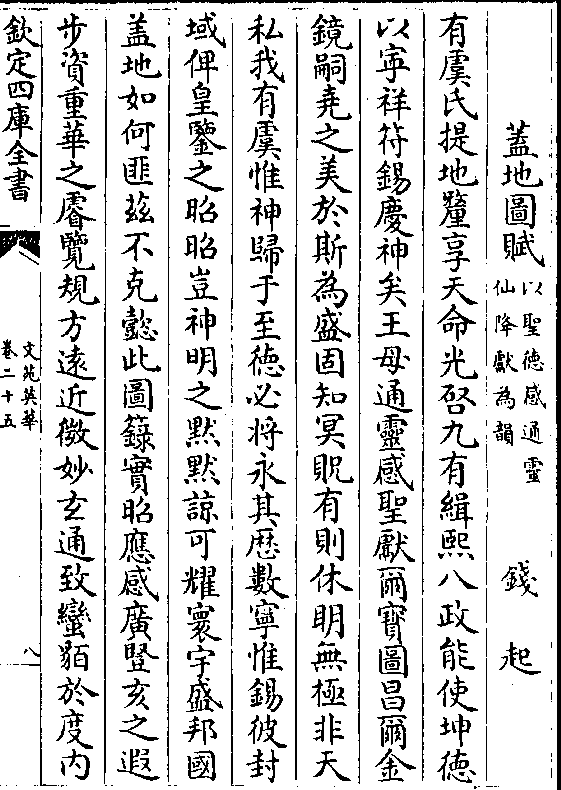 蓋地圖賦 以聖德感通靈
仙降獻為韻 錢起
有虞氏提地釐享天命光啓九有緝熙八政能使坤德
以寜祥符錫慶神矣王母通靈感聖獻爾寳圖昌爾金
鏡嗣堯之美於斯為盛固知冥貺有則休明無極非天
私我有虞惟神歸于至徳必將永其厯數寧惟錫彼封
域俾皇鑒之昭昭豈神明之黙黙諒可耀寰宇盛邦國
盖地如何匪兹不克懿此圖籙實昭應感廣豎亥之遐
步資重華之睿覽規方逺近微妙玄通致蠻貊於度内
欽定四庫全書
文苑英華
卷二十五
八